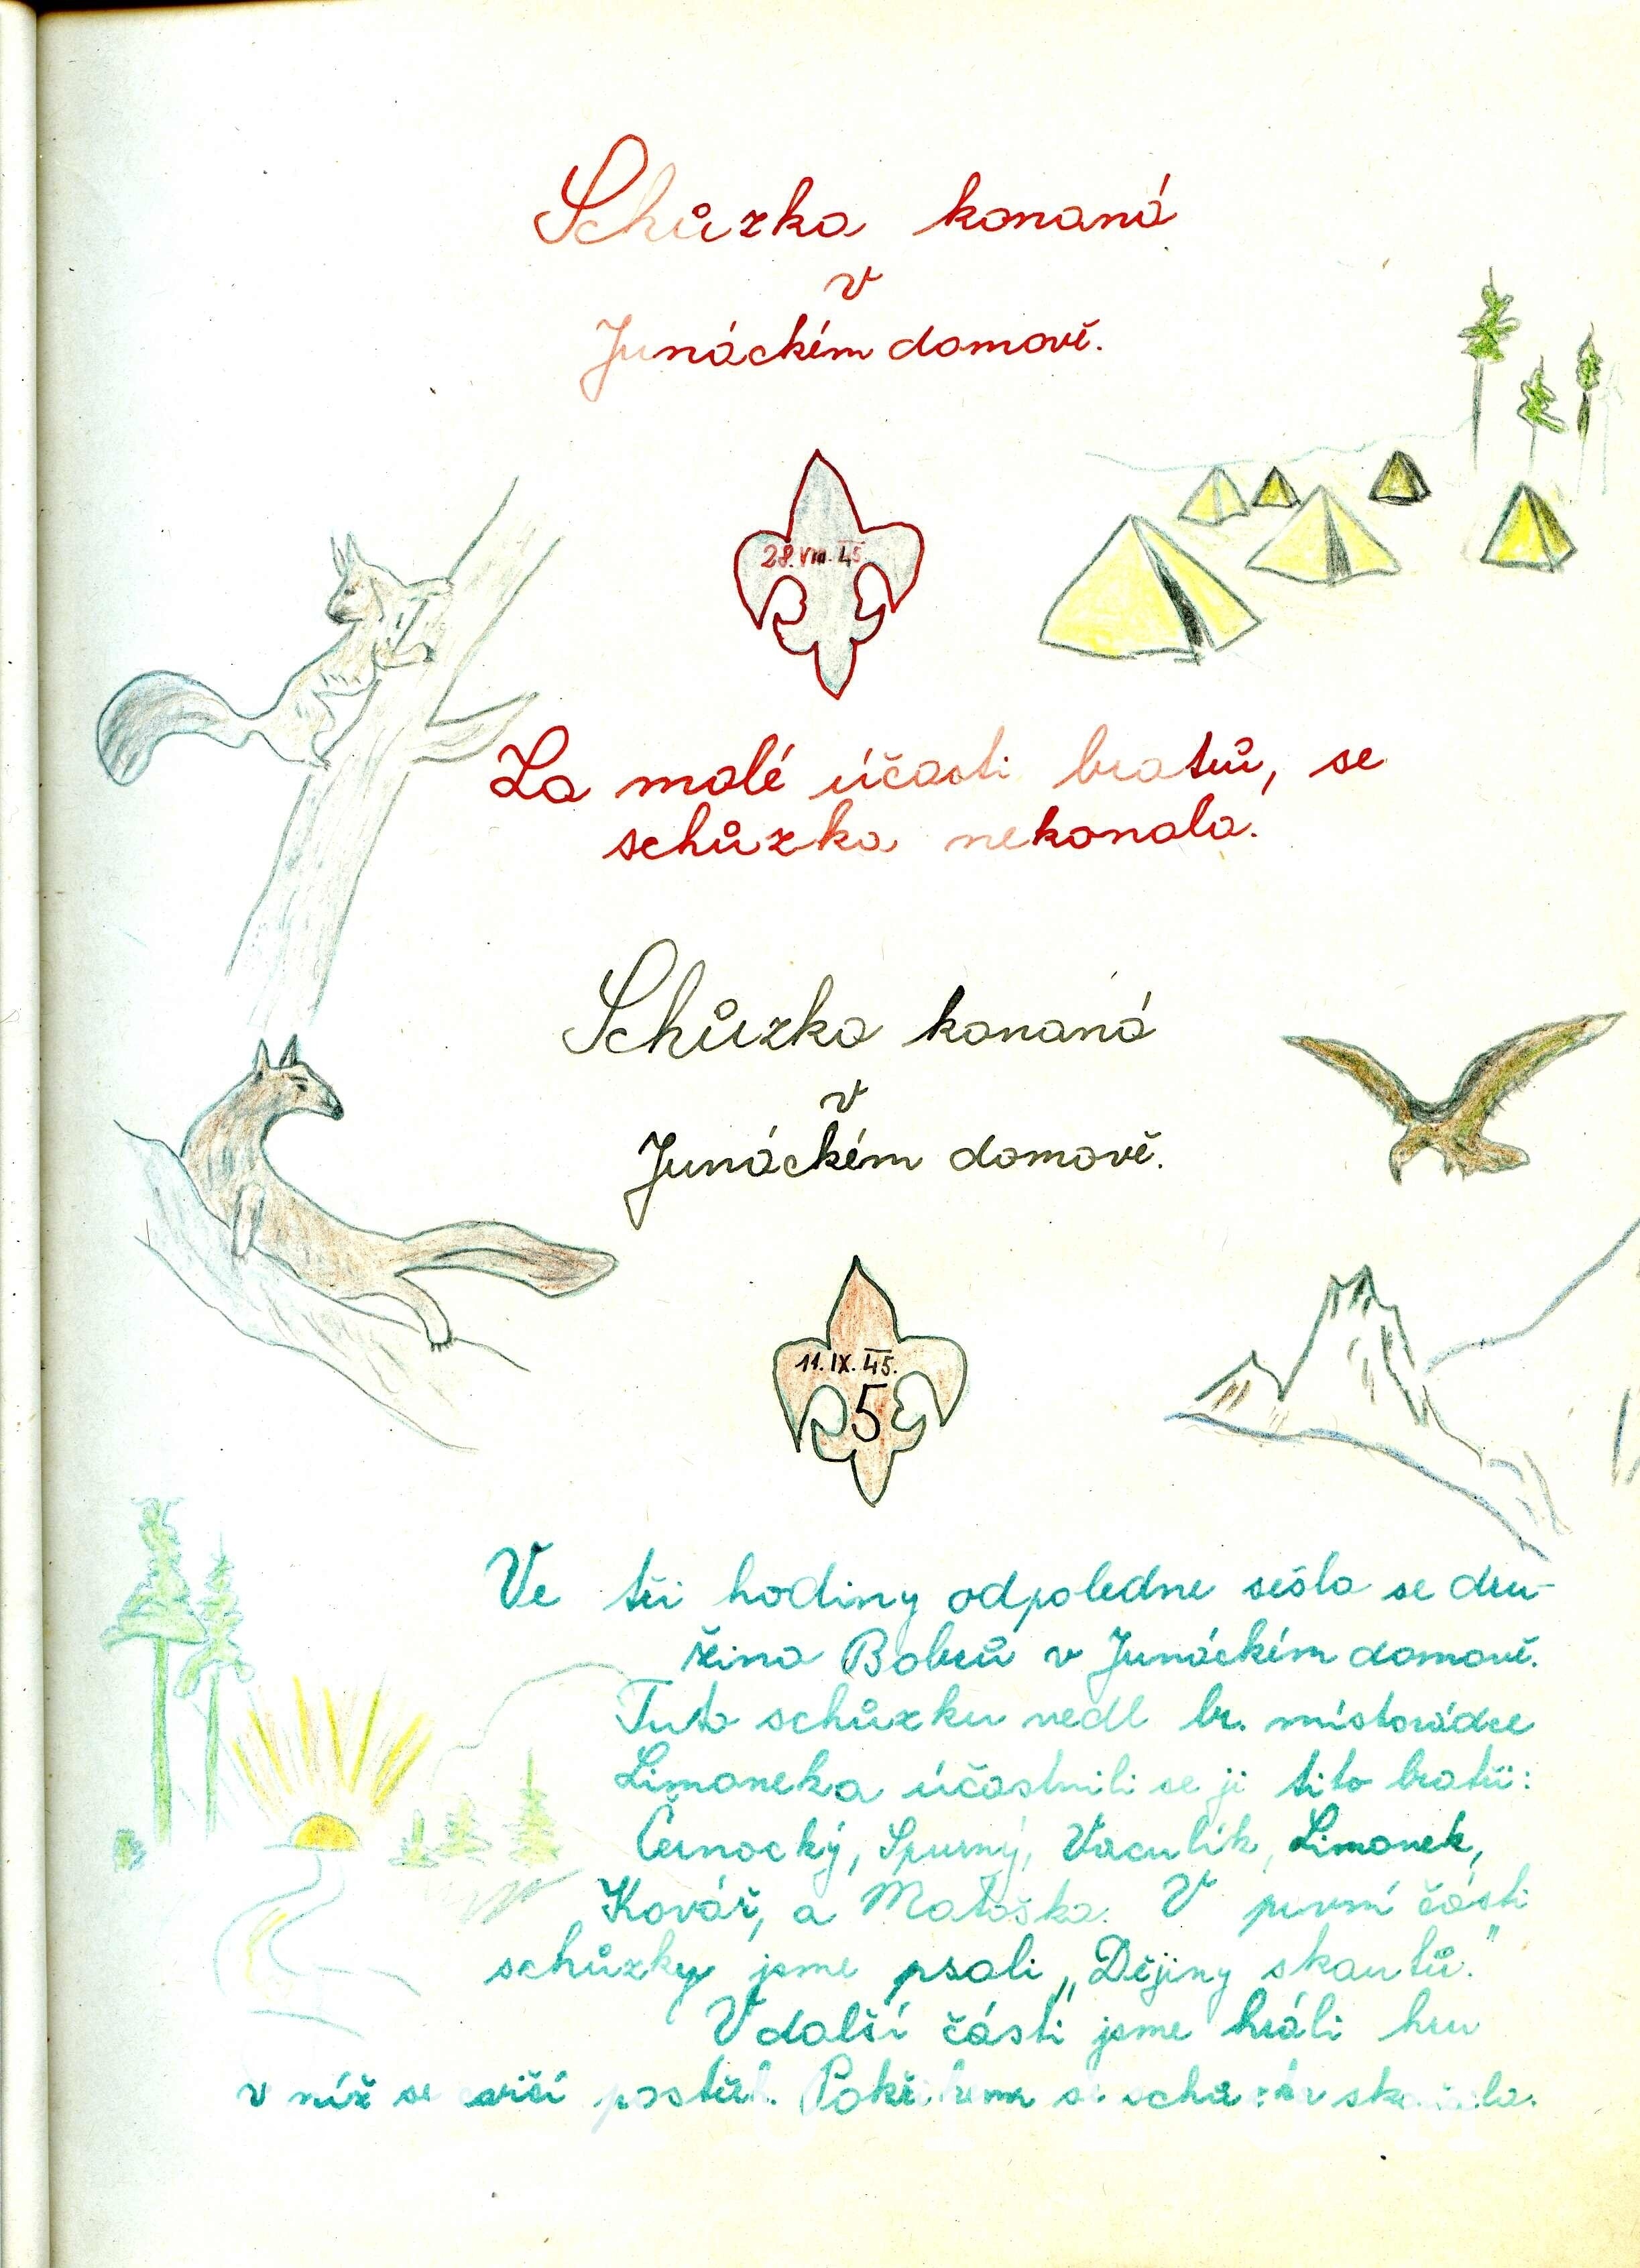 Schůzka konaná
v
Junáckém domově.
28. VIII. 45.
Za malé účasti bratrů, se
schůzka nekonala.
Schůzka konaná
v
Junáckém domově.
11. IX. 45.
5
Ve tři hodiny odpoledne sešla se dru-
žina Bobrů v Junáckém domově.
Tuto schůzku vedl br. místorádce
Limaneka účastnili se jí tito bratři:
Černocký, Spurný, Vaculík, Limanek,
Kovář, a Matoška. V první části
schůzky jsme psali „Dějiny skautů."
V další části jsme hráli hru
v níž se cvičí postřeh. Pokřikem se schůzka skončila.